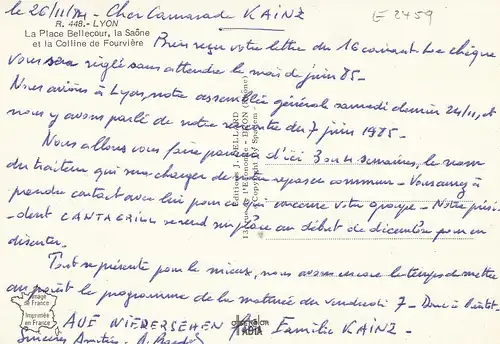 le 26/11/84 - Cher Camarade KAINZ
E 2459
R. 448. - LYON
La Place Bellecour, la Saône
et la Colline de Fourvière
Bien reçu votre lettre du 16 courant. Le chèque
vous sera réglé sans attendre le mois de juin 85 -
Nous avions à Lyon, notre assemblée générale samedi dernier 24/11, et
nous y avons parlé de notre rencontre du 7 juin 1985 -
Nous allons vous faire parvenir d'ici 3 ou 4 semaines, le nom
du traiteur qui se charge de notre repas commun - Vous aurez à
prendre contact avec lui pour ce qui concerne votre groupe - Notre prési-
-dent CANTAGRILL se rend sur place au début de décembre pour en
discuter -
Tout se présente pour le mieux, nous avons encore le temps de mettre
au point le programme de la matinée du vendredi 7 - Donc à bientôt -
AUF WIEDERSEHEN Famille KAINZ -
Sincères Amitiés -
Editions
13, rue de l'Economie - BRON (Rhône)
Copyright by
Image
de France
Imprimée
en France